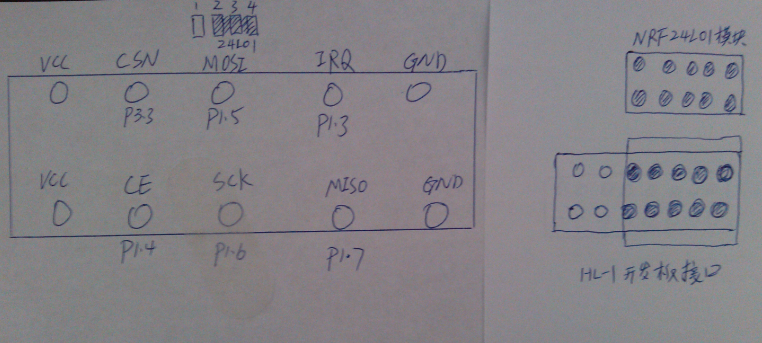 1 2 3 4
24L01
VCC CSN MOSI IRQ GND
P3.3 P1.5 P1.3
VCC CE SCK MISO GND
P1.4 P1.6 P1.7
NRF24L01模块
HL-1开发板接口